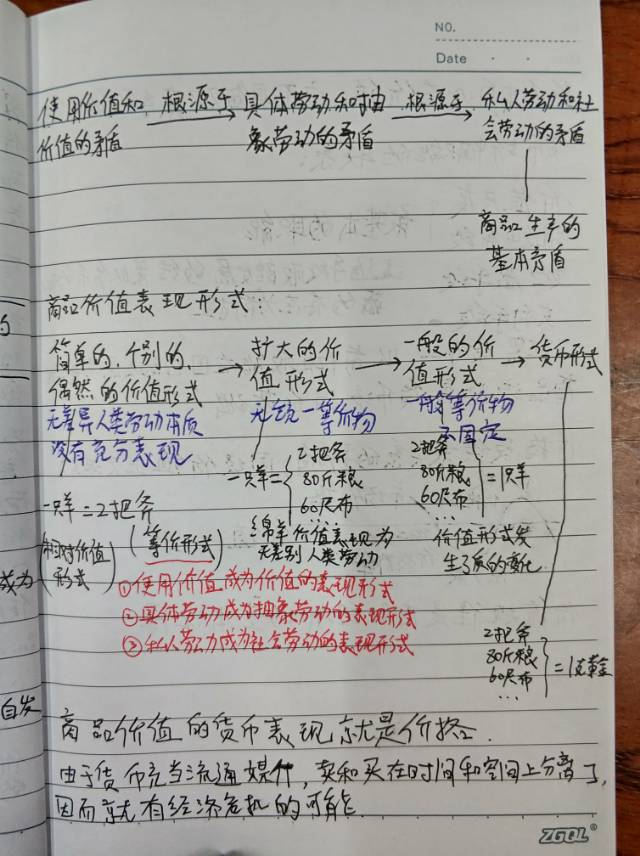 NO.
Date
使用价值和 根源于 具体劳动和抽 根源于 私人劳动和社
价值的矛盾 象劳动的矛盾 会劳动的矛盾
商品生产的
基本矛盾
商品价值表现形式：
简单的,个别的, 扩大的价 一般的价 货币形式
偶然的价值形式 值形式 值形式
无差异人类劳动本质 无统一等价物 一般等价物
没有充分表现 不固定
一只羊= 2把斧 80斤粮 60尺布
2把斧 80斤粮 60尺布 … =1只羊
一只羊=2把斧
(相对价值形式) (等价形式)
绵羊价值表现为
无差别人类劳动
价值形式发
生了质的变化
①使用价值成为价值的表现形式
②具体劳动成为抽象劳动的表现形式
③私人劳动成为社会劳动的表现形式
2把斧
80斤粮
60尺布 =1克黄金
…
成为
自发
商品价值的货币表现就是价格.
由于货币充当流通媒介,卖和买在时间和空间上分离了,
因而就有经济危机的可能.
ZGOL®